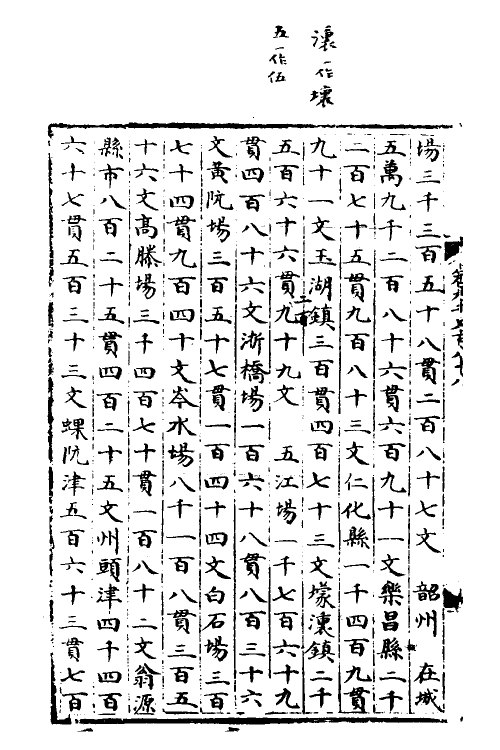 瀼一作壤
五一作伍
場三千三百五十八貫二百八十七文　韶州　在城
五萬九千二百八十六貫六百九十一文樂昌縣二千
二百七十五貫九百八十三文仁化縣一千四百九貫
九十一文玉湖鎮三百貫四百七十三文濛瀼鎮二千
五百六十六貫二百九十九文　五江場一千七百六十九
貫四百八十六文淅橋場一百六十八貫八百三十六
文黃阬場三百五十七貫一百四十四文白石場三百
七十四貫九百四十文岑水場八千一百八貫三百五
十六文高勝場三千四百七十貫一百八十二文翁源
縣市八百二十五貫四百二十五文州頭津四千四百
六十七貫五百三十三文螺阬津五百六十三貫七百